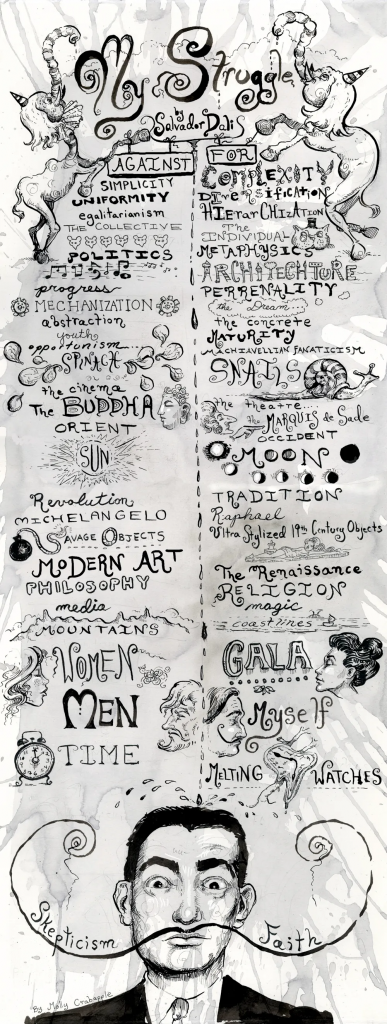 My Struggle
by
Salvador Dali
AGAINST
SIMPLICITY
UNIFORMITY
egalitarianism
THE COLLECTIVE
POLITICS
progress
MECHANIZATION
abstraction
youth
opportunism...
SPINACH
the cinema
The BUDDHA
ORIENT
SUN
Revolution
MICHELANGELO
SAVAGE OBJECTS
MODERN ART
PHILOSOPHY
media
MOUNTAINS
WOMEN
MEN
TIME
FOR
COMPLEXITY
DIVERSIFICATION
HIERARCHIZATION
THE INDIVIDUAL
METAPHYSICS
ARCHITECHTURE
PERRENALITY
the Dream
the concrete
MATURITY
MACHIAVELLIAN FANATICISM
SNAILS
the theatre...
The MARQUIS de Sade
OCCIDENT
MOON
TRADITION
Raphael
Ultra Stylized 19th Century Objects
The Renaissance
RELIGION
magic
coastlines
GALA
Myself
MELTING WATCHES
Skepticism
Faith
By Molly Crabapple